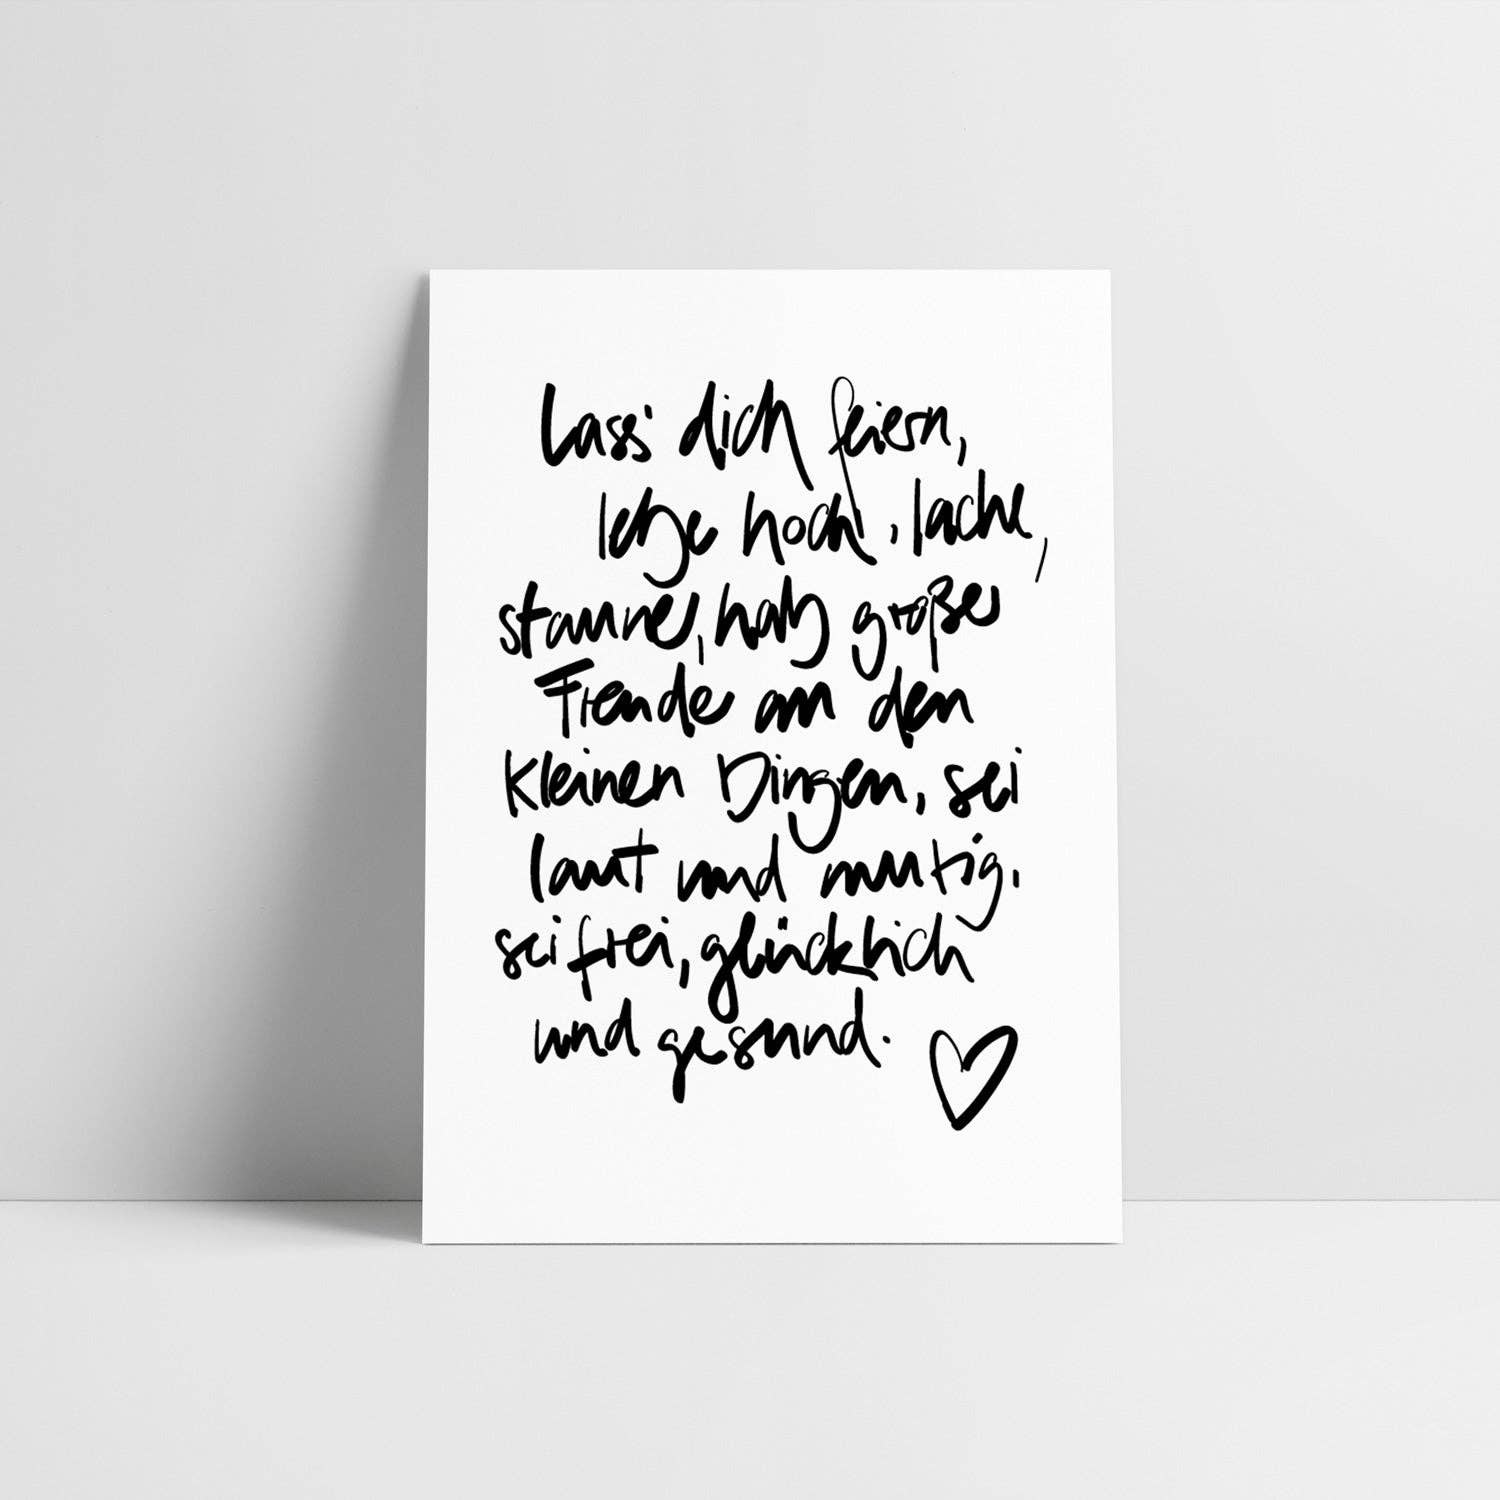 Lass' dich feiern,
lebe hoch, lache,
staune, hab große
Freude an den
kleinen Dingen, sei
laut und mutig,
sei frei, glücklich
und gesund.